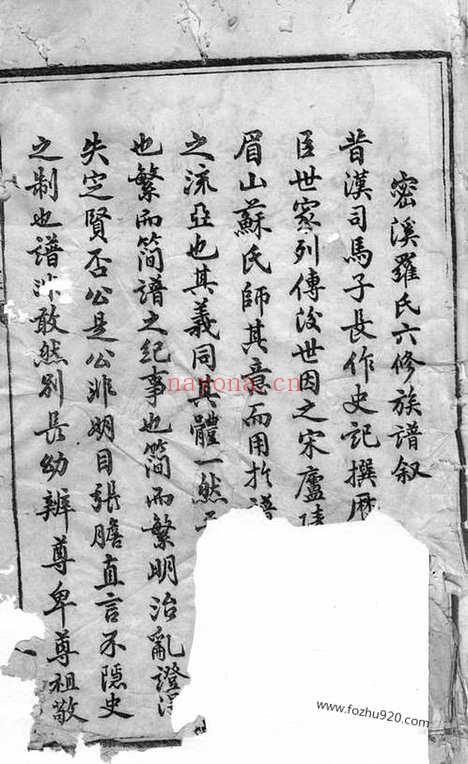 密溪羅氏六修族譜叙
昔漢司馬子長作史記撰
臣世家列傳後世因之宋廬
眉山蘇氏師其意而用於譜
之流亞也其義同其體一然
也繁而簡譜之紀事也簡而繁明治亂澄
失定賢否公是公非明目張膽直言不隱史
之制也譜非敢然别長幼辨尊卑尊祖敬
nayona.cn
www.fozhu920.com